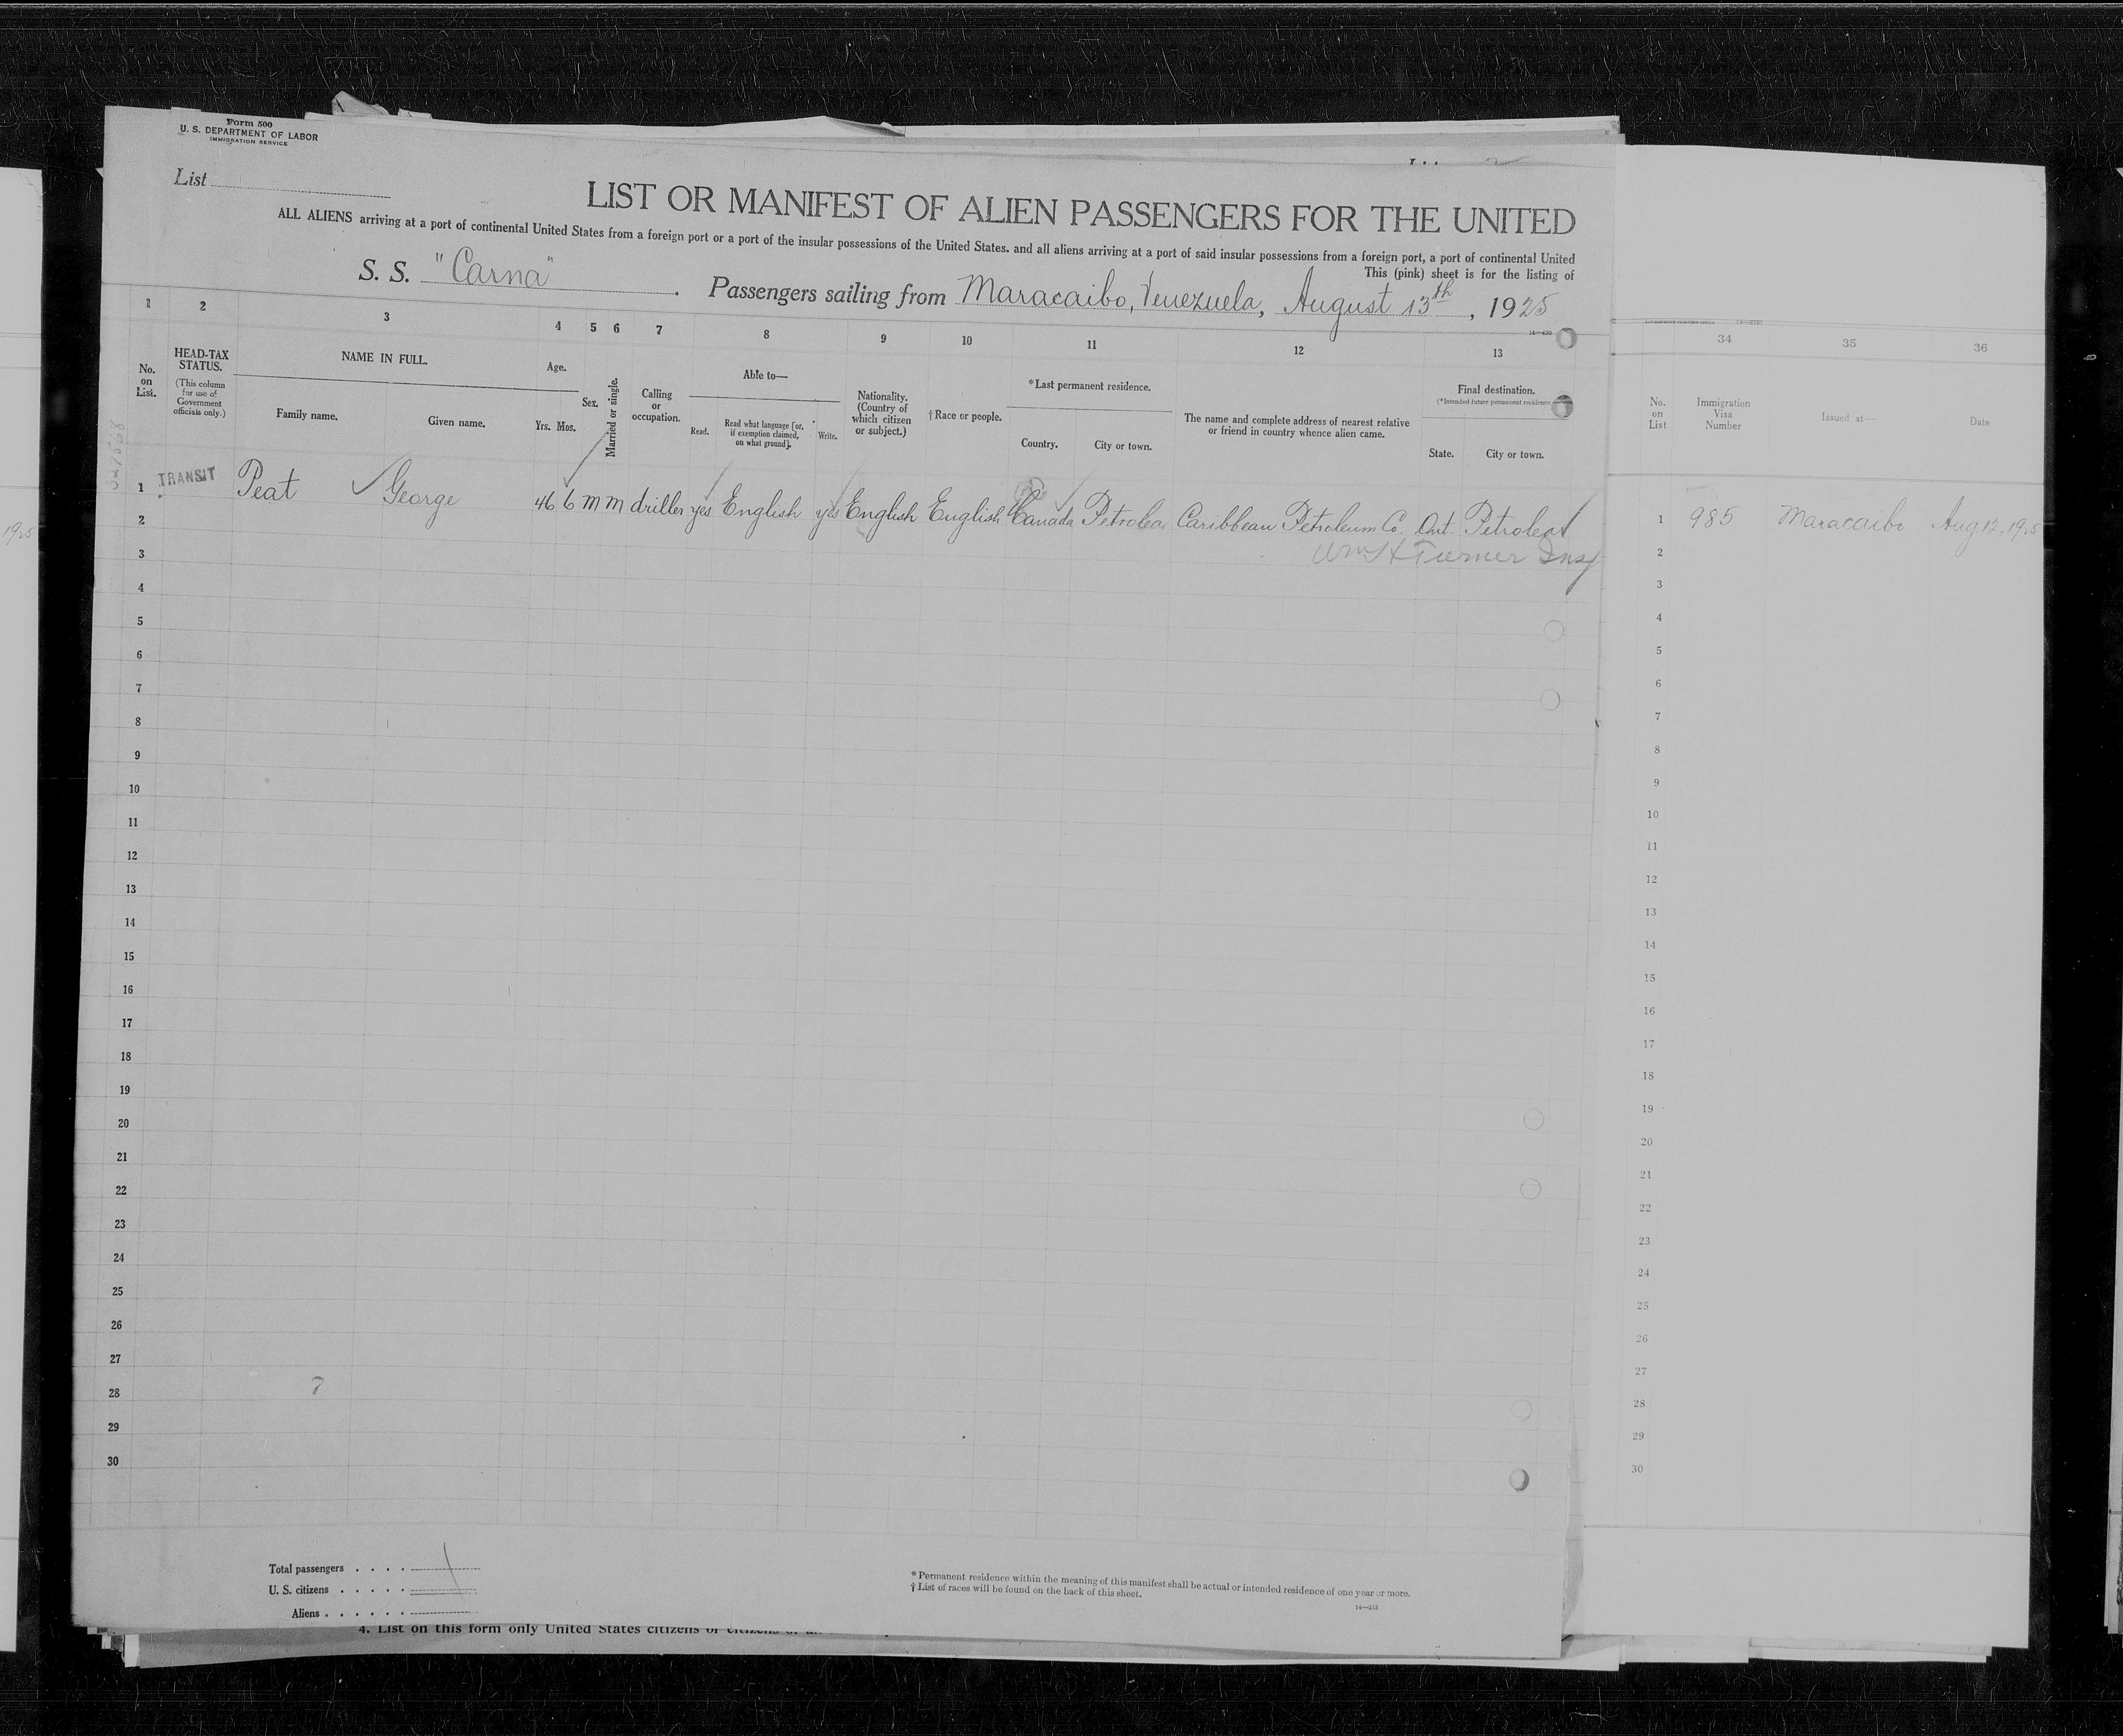 Form 500
U. S. DEPARTMENT OF LABOR
IMMIGRATION SERVICE
List
LIST OR MANIFEST OF ALIEN PASSENGERS FOR THE UNITED
ALL ALIENS arriving at a port of continental United States from a foreign port or a port of the insular possessions of the United States. and all aliens arriving at a port of said insular possessions from a foreign port, a port of continental United
This (pink) sheet is for the listing of
S. S. "Carna" Passengers sailing from Maracaibo, Venezuela, August 13th, 1925
1 2 3 4 5 6 7 8 9 10 11 12 13
No. on List.
HEAD-TAX STATUS.
(This column for use of Government officials only.)
NAME IN FULL.
Family name. Given name.
Age.
Yrs. Mos.
Sex.
Married or single.
Calling or occupation.
Able to—
Read. Read what language [or, if exemption claimed, on what ground]. Write.
Nationality. (Country of which citizen or subject.)
†Race or people.
*Last permanent residence.
Country. City or town.
The name and complete address of nearest relative or friend in country whence alien came.
Final destination.
(*Intended future permanent residence.)
State. City or town.
34 35 36
No. on List
Immigration Visa Number
Issued at—
Date
1 TRANSIT Peat George 46 6 m m driller yes English yes English English Canada Petrolea Caribbean Petroleum Co. Ont. Petrolea
1 985 Maracaibo Aug 12, 1925
Wm H Turner Insp
2
3
4
5
6
7
8
9
10
11
12
13
14
15
16
17
18
19
20
21
22
23
24
25
26
27
28
29
30
7
2
3
4
5
6
7
8
9
10
11
12
13
14
15
16
17
18
19
20
21
22
23
24
25
26
27
28
29
30
Total passengers . . . . 1
U. S. citizens . . . . .
Aliens . . . . . .
* Permanent residence within the meaning of this manifest shall be actual or intended residence of one year or more.
† List of races will be found on the back of this sheet.
14—213
4. List on this form only United States citizens or
1925